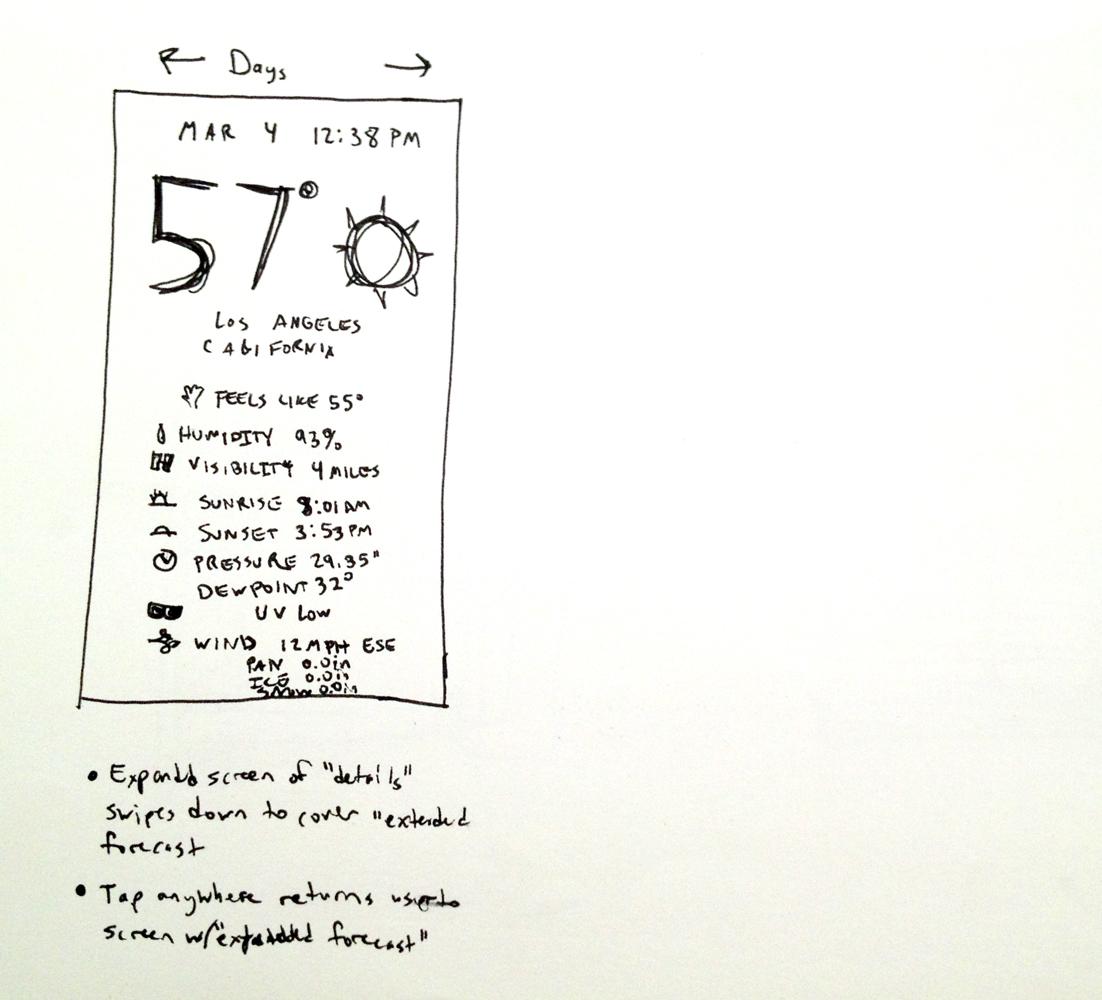 ← Days →
MAR 4 12:38 PM
57°
LOS ANGELES
CALIFORNIA
FEELS LIKE 55°
HUMIDITY 93%
VISIBILITY 4 MILES
SUNRISE 8:01 AM
SUNSET 3:53 PM
PRESSURE 29.35"
DEWPOINT 32°
UV Low
WIND 12 MPH ESE
0.0in
ICE 0.0in
Snow 0.0in
• Expanded screen of "details"
swipes down to cover "extended
forecast
• Tap anywhere returns user to
screen w/"extended forecast"